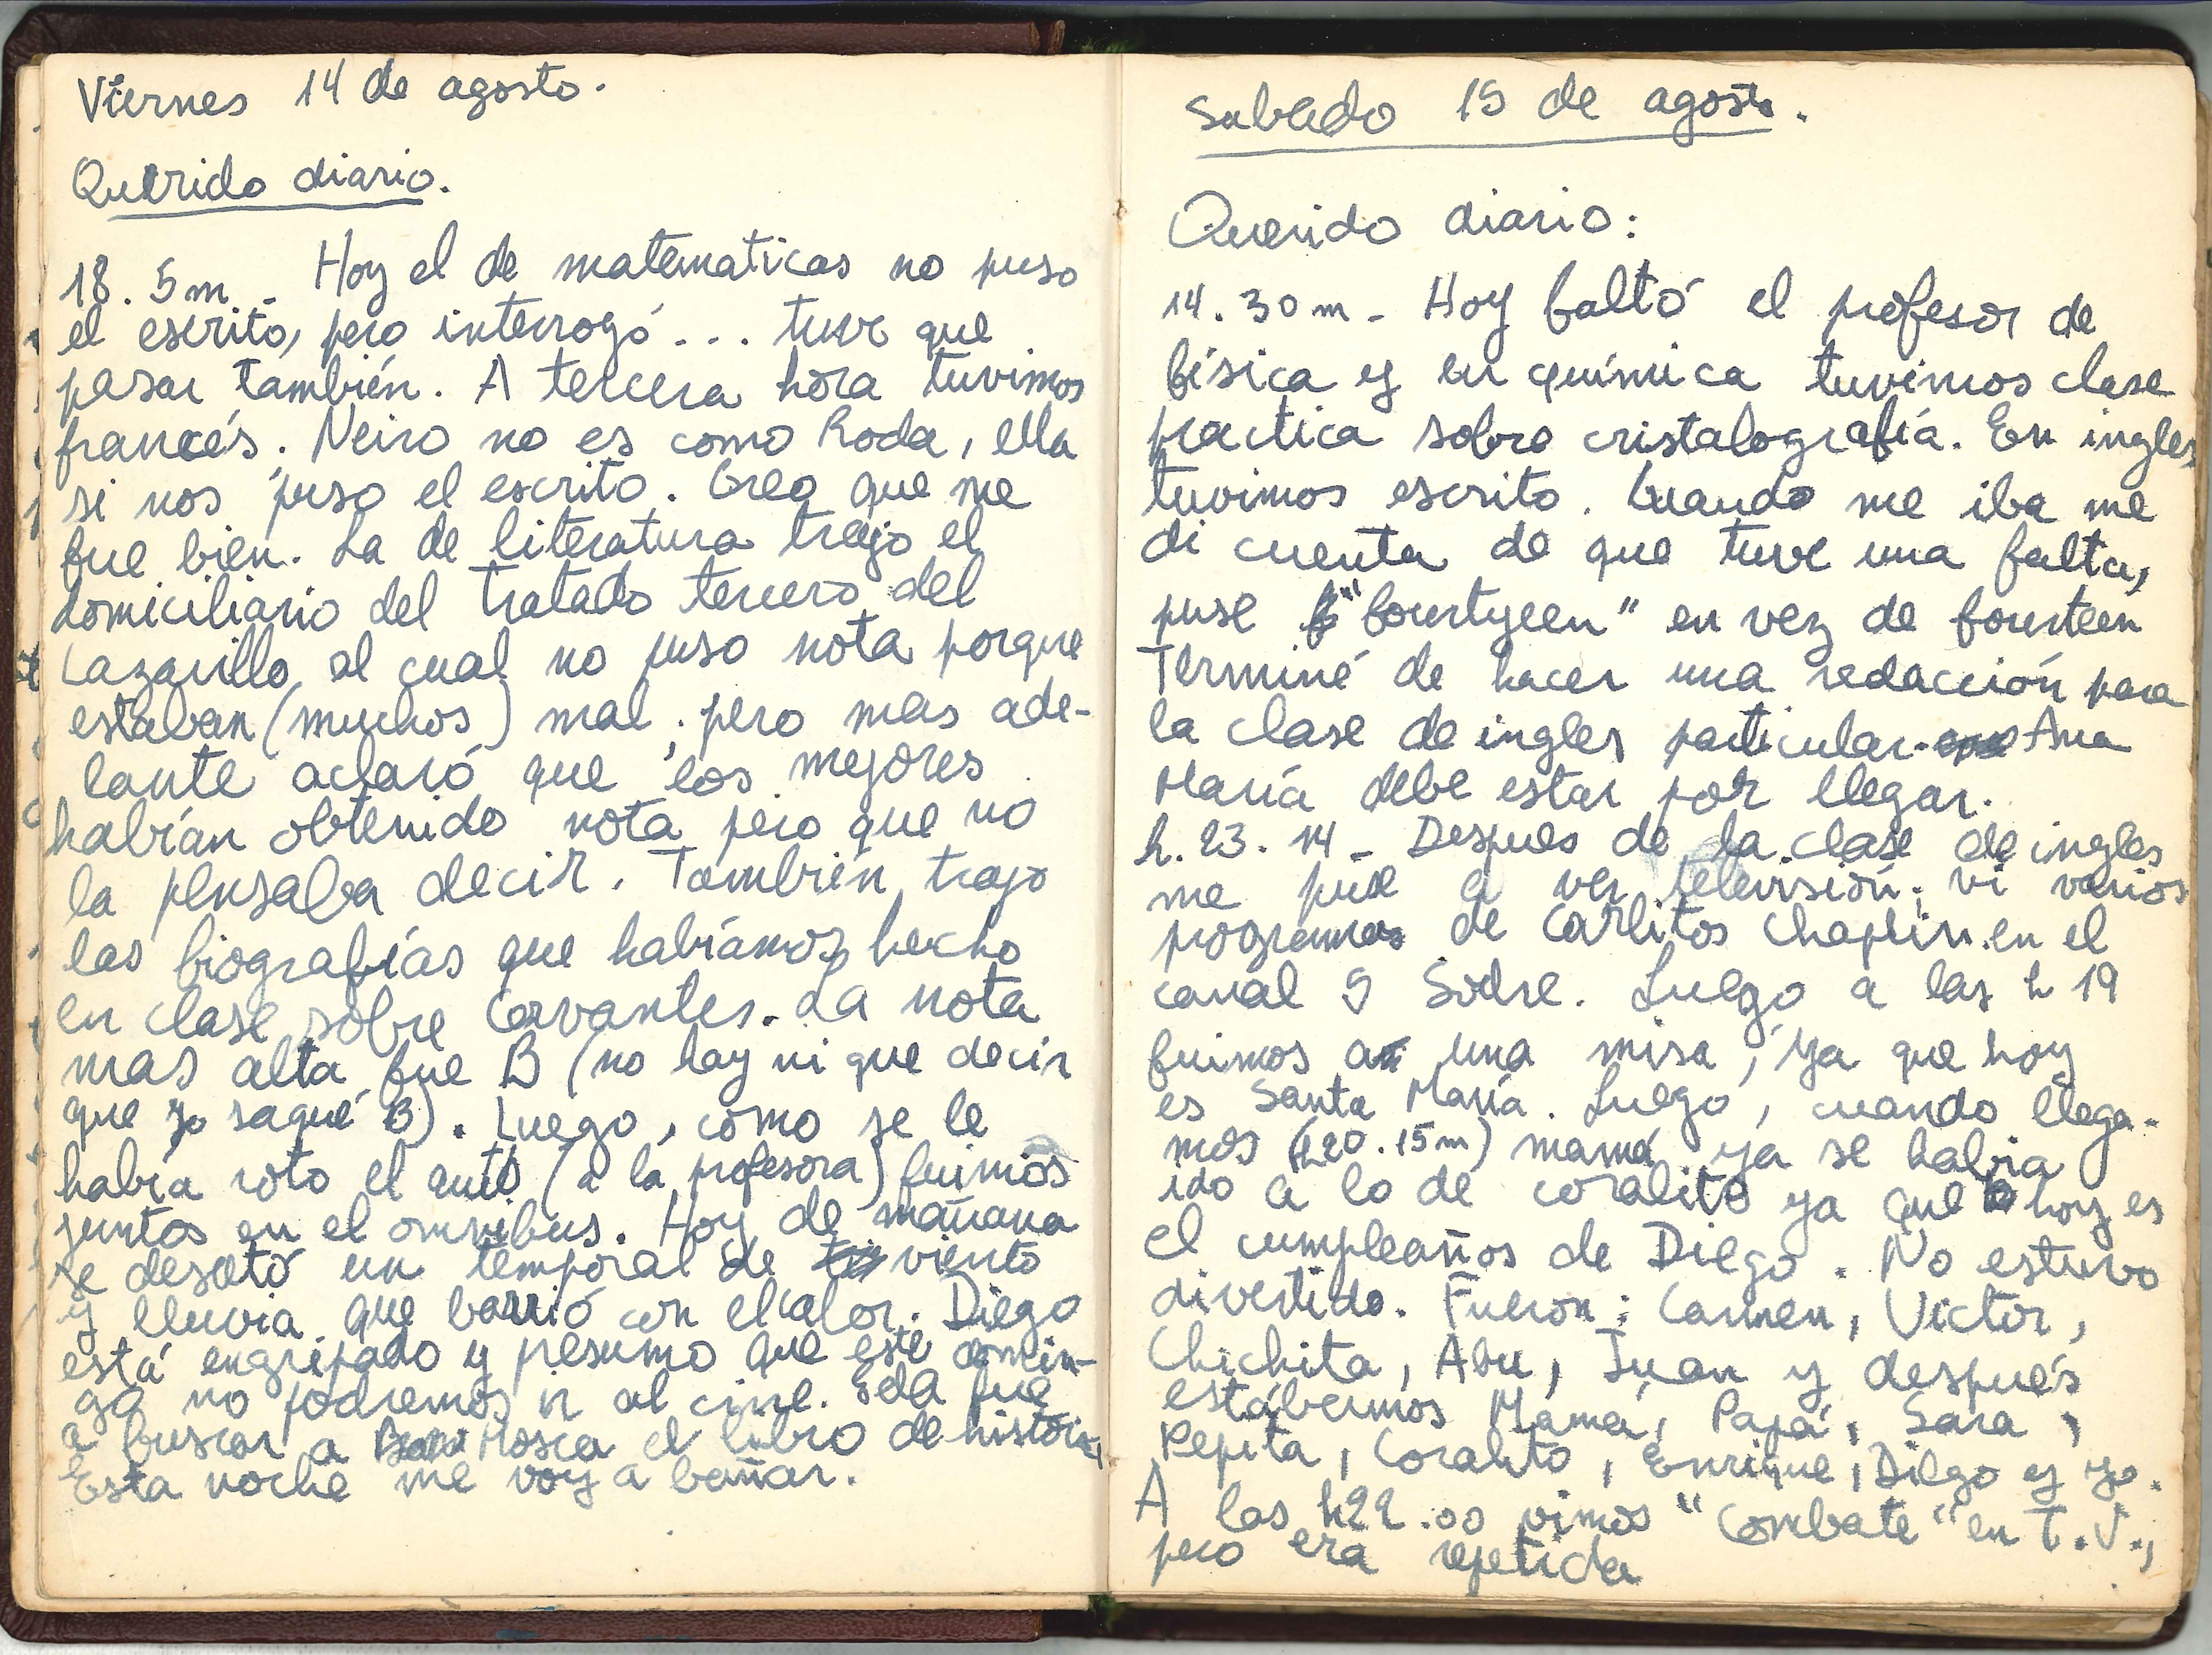 Viernes 14 de agosto.
Querido diario.
18. 5m - Hoy el de matematicas no puso
el escrito, pero interrogó... tuve que
pasar también. A tercera hora tuvimos
francés. Neiro no es como Roda, ella
si nos puso el escrito. Creo que me
fue bien. La de literatura trajo el
domiciliario del tratado tercero del
Lazarillo al cual no puso nota porque
estaban (muchos) mal; pero mas ade-
lante aclaró que los mejores
habían obtenido nota pero que no
la pensaba decir. También trajo
las biografías que habíamos hecho
en clase sobre Cervantes. La nota
mas alta fue B (no hay ni que decir
que yo saqué B). Luego, como se le
había roto el auto (a la profesora) fuimos
juntos en el omnibus. Hoy de mañana
se desató un temporal de viento
y lluvia que barrió con el calor. Diego
está engripado y presumo que este domin-
go no podremos ir al cine. Eda fue
a buscar a Mosca el libro de historia,
Esta noche me voy a bañar.
Sabado 15 de agosto.
Querido diario:
14. 30m - Hoy faltó el profesor de
física y en química tuvimos clase
practica sobre cristalografía. En ingles
tuvimos escrito. Cuando me iba me
di cuenta de que tuve una falta,
puse "fourtyeen" en vez de fourteen
Terminé de hacer una redacción para
la clase de ingles particular. Ana
María debe estar por llegar.
h. 23. 14 - Despues de la clase de ingles
me puse a ver televisión; vi varios
programas de Carlitos Chaplin en el
canal 5 Sodre. Luego a las h 19
fuimos a una misa, ya que hoy
es Santa María. Luego, cuando llega-
mos (h20. 15m) mamá ya se había
ido a lo de coralito ya que hoy es
el cumpleaños de Diego. No estuvo
divertido. Fueron: Carmen, Victor,
Chichita, Abu, Juan y después
estábamos Mamá, Papá, Sara,
Pepita, Coralito, Enrique, Diego y yo.
A las h22.00 vimos "Combate" en T.V.,
pero era repetida